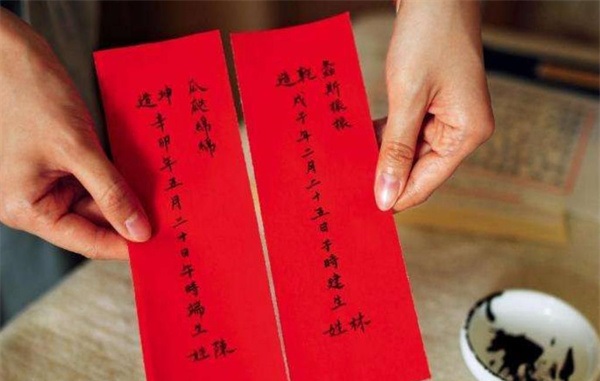 螽斯振振
乾造戊子年二月二十五日子時建生林姓
瓜瓞綿綿
坤造辛卯年五月二十日午時端生陳姓